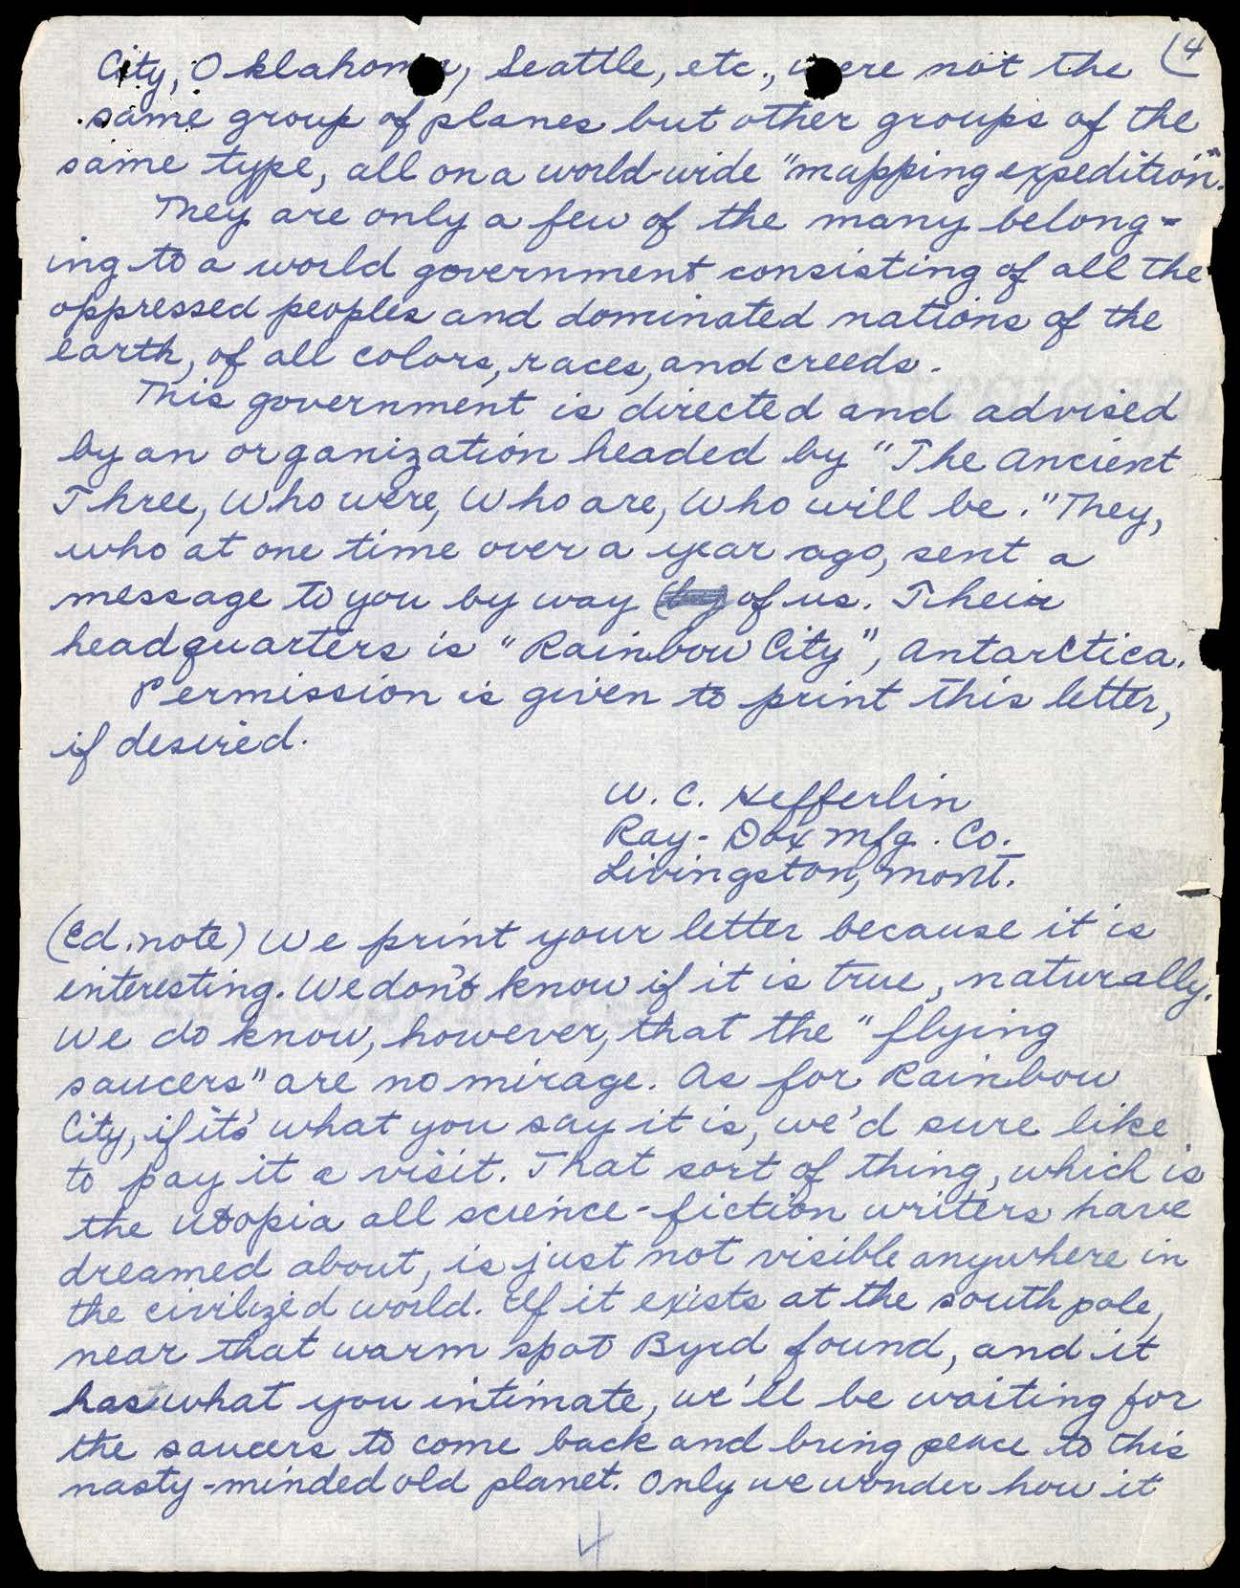 (4
City, Oklahoma, Seattle, etc., were not the
same group of planes but other groups of the
same type, all on a world-wide "mapping expedition".
They are only a few of the many belong-
ing to a world government consisting of all the
oppressed peoples and dominated nations of the
earth, of all colors, races, and creeds.
This government is directed and advised
by an organization headed by "The Ancient
Three, Who were, Who are, Who will be." They,
who at one time over a year ago, sent a
message to you by way of us. Their
headquarters is "Rainbow City", Antarctica.
Permission is given to print this letter,
if desired.
W. C. Hefferlin
Ray-Dox Mfg. Co.
Livingston, Mont.
(Ed. note) We print your letter because it is
interesting. We don't know if it is true, naturally.
We do know, however, that the "flying
saucers" are no mirage. As for Rainbow
City, if its' what you say it is, we'd sure like
to pay it a visit. That sort of thing, which is
the utopia all science-fiction writers have
dreamed about, is just not visible anywhere in
the civilized world. If it exists at the south pole,
near that warm spot Byrd found, and it
has what you intimate, we'll be waiting for
the saucers to come back and bring peace to this
nasty-minded old planet. Only we wonder how it
4